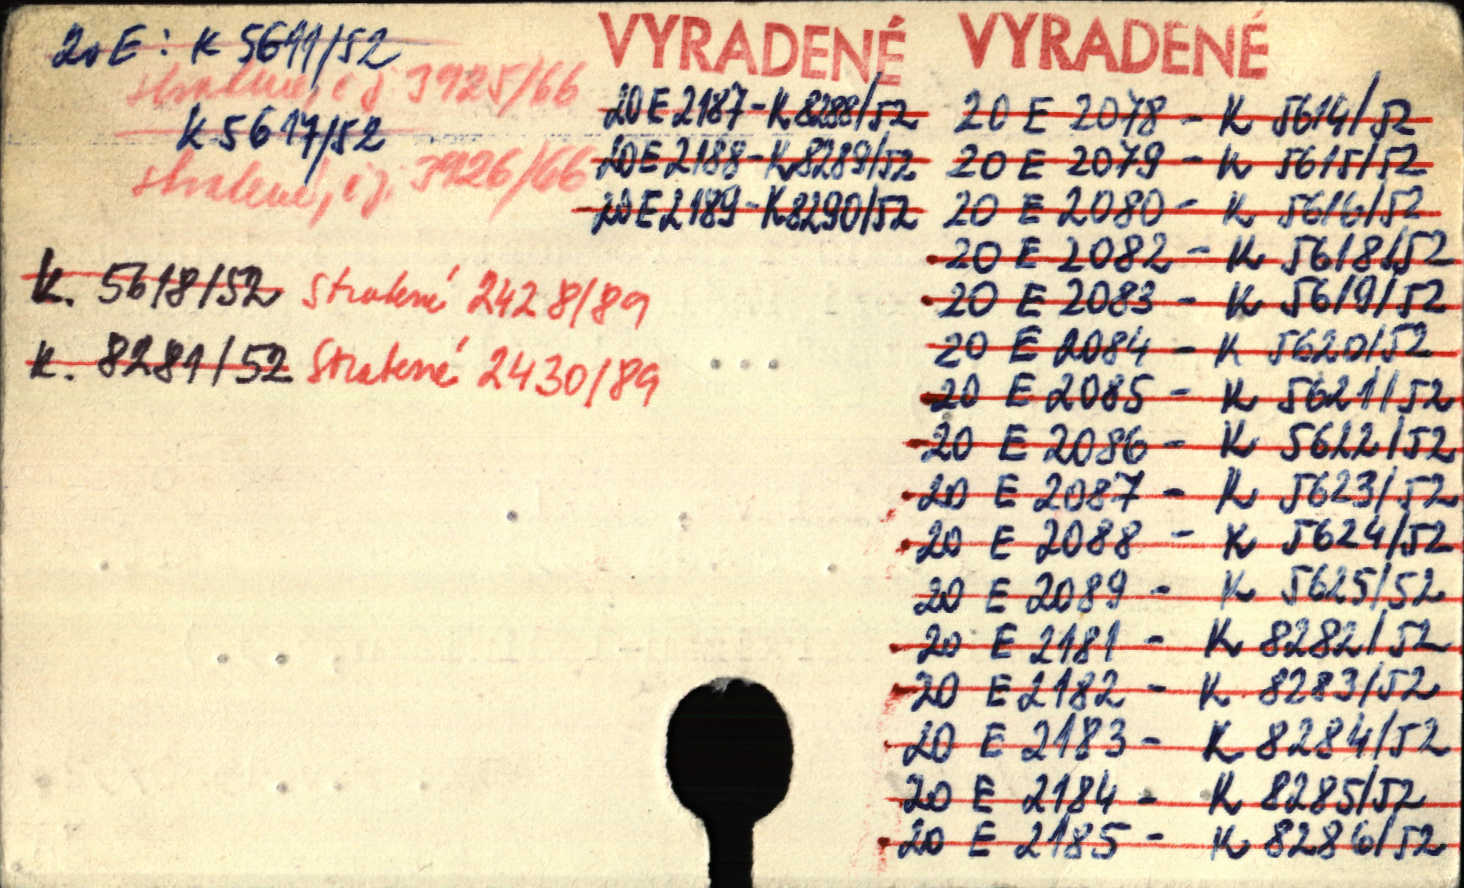 20 E: K 5611/52
stratené, čj 3925/66
K 5617/52
stratené, čj. 3926/66
K. 5618/52 Stratené 2428/89
K. 8281/52 Stratené 2430/89
VYRADENÉ
20 E 2187 - K 8288/52
20 E 2188 - K 8289/52
20 E 2189 - K 8290/52
VYRADENÉ
20 E 2078 - K 5614/52
20 E 2079 - K 5615/52
20 E 2080 - K 5616/52
20 E 2082 - K 5618/52
20 E 2083 - K 5619/52
20 E 2084 - K 5620/52
20 E 2085 - K 5621/52
20 E 2086 - K 5622/52
20 E 2087 - K 5623/52
20 E 2088 - K 5624/52
20 E 2089 - K 5625/52
20 E 2181 - K 8282/52
20 E 2182 - K 8283/52
20 E 2183 - K 8284/52
20 E 2184 - K 8285/52
20 E 2185 - K 8286/52